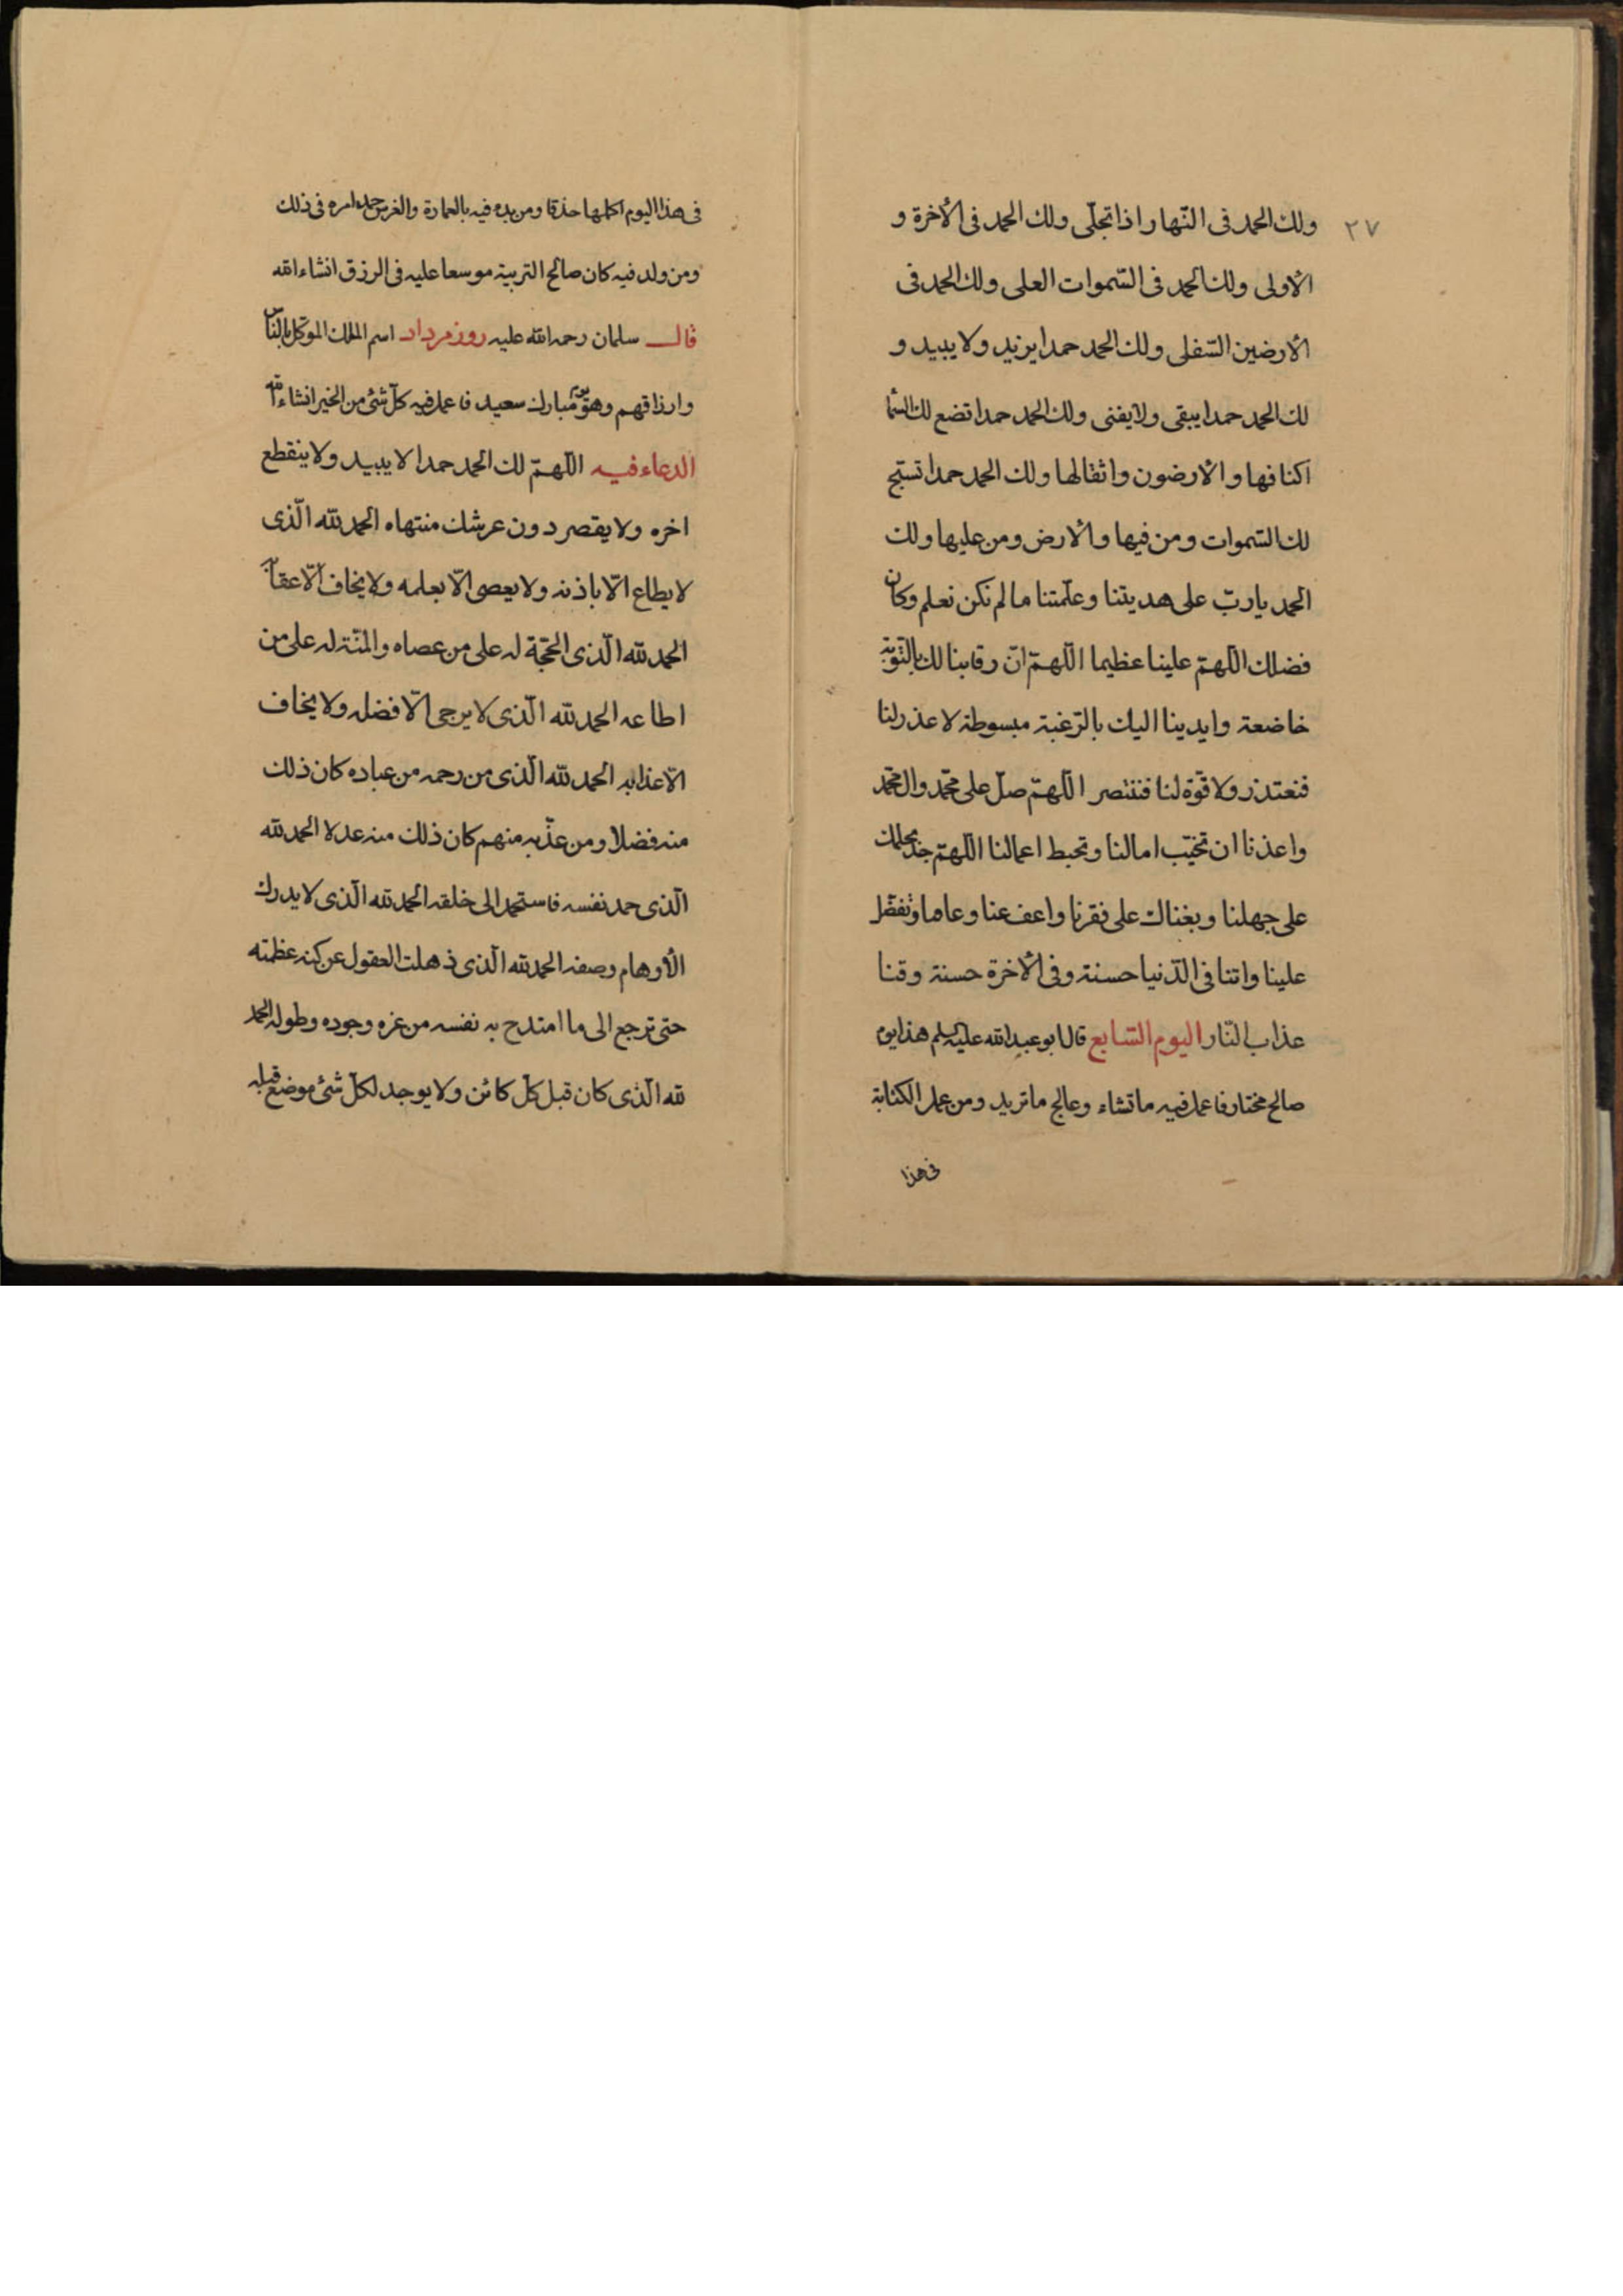 ٢٧
ولك الحمد فى النّهار اذا تجلّى ولك الحمد فى الأخرة و
الأولى ولك الحمد فى السّموات العلى ولك الحمد فى
الأرضين السّفلى ولك الحمد حمدا يزيد ولا يبيد و
لك الحمد حمدا يبقى ولا يفنى ولك الحمد حمدا تضع لك السّما
اكنافها و الأرضون واثقالها ولك الحمد حمدا تسبّح
لك السّموات ومن فيها والأرض ومن عليها ولك
الحمد يا ربّ على هديتنا وعلّمتنا ما لم نكن نعلم وكان
فضلك اللّهمّ علينا عظيما اللّهمّ انّ رقابنا لك بالتّوبة
خاضعة وايدينا اليك بالرّغبة مبسوطة لا عذر لنا
فنعتذر ولا قوّة لنا فننتصر اللّهمّ صلّ على محمّد وال محمّد
واعذنا ان تخيّب امالنا وتحبط اعمالنا اللّهمّ جد بحلمك
على جهلنا وبغناك على فقرنا واعف عنا وعافنا وتفضّل
علينا واتنا فى الدّنيا حسنة وفى الأخرة حسنة وقنا
عذاب النّار اليوم السّابع قال ابو عبد الله عليه السلم هذا يوم
صالح مختار فاعمل فيه ما تشاء وعالج ما تريد ومن عمل الكتابة
فى هذا
فى هذا اليوم اكملها حذقا ومن بدء فيه بالعمارة والغرس حمد امره فى ذلك
ومن ولد فيه كان صالح التربية موسعا عليه فى الرزق انشاء الله
قال سلمان رحمة الله عليه روز مرداد اسم الملك الموكّل بالنّاس
وارزاقهم وهو يوم مبارك سعيد فاعمل فيه كلّ شئ من الخير انشاء الله
الدعاء فيه اللّهمّ لك الحمد حمدا لا يبيد ولا ينقطع
اخره ولا يقصر دون عرشك منتهاه الحمد لله الّذى
لا يطاع الّا باذنه ولا يعصى الّا بعلمه ولا يخاف الّا عقابه
الحمد لله الّذى الحجّة له على من عصاه والمنّة له على من
اطاعه الحمد لله الّذى لا يرجى الّا فضله ولا يخاف
الّا عذابه الحمد لله الّذى من رحمه من عباده كان ذلك
منه فضلا ومن عذّبه منهم كان ذلك منه عدلا الحمد لله
الّذى حمد نفسه فاستحمد الى خلقه الحمد لله الّذى لا يدرك
الأوهام وصفه الحمد لله الّذى ذهلت العقول عن كنه عظمته
حتى ترجع الى ما امتدح به نفسه من عزه وجوده وطوله الحمد
لله الّذى كان قبل كلّ كائن ولا يوجد لكلّ شئ موضع قبله